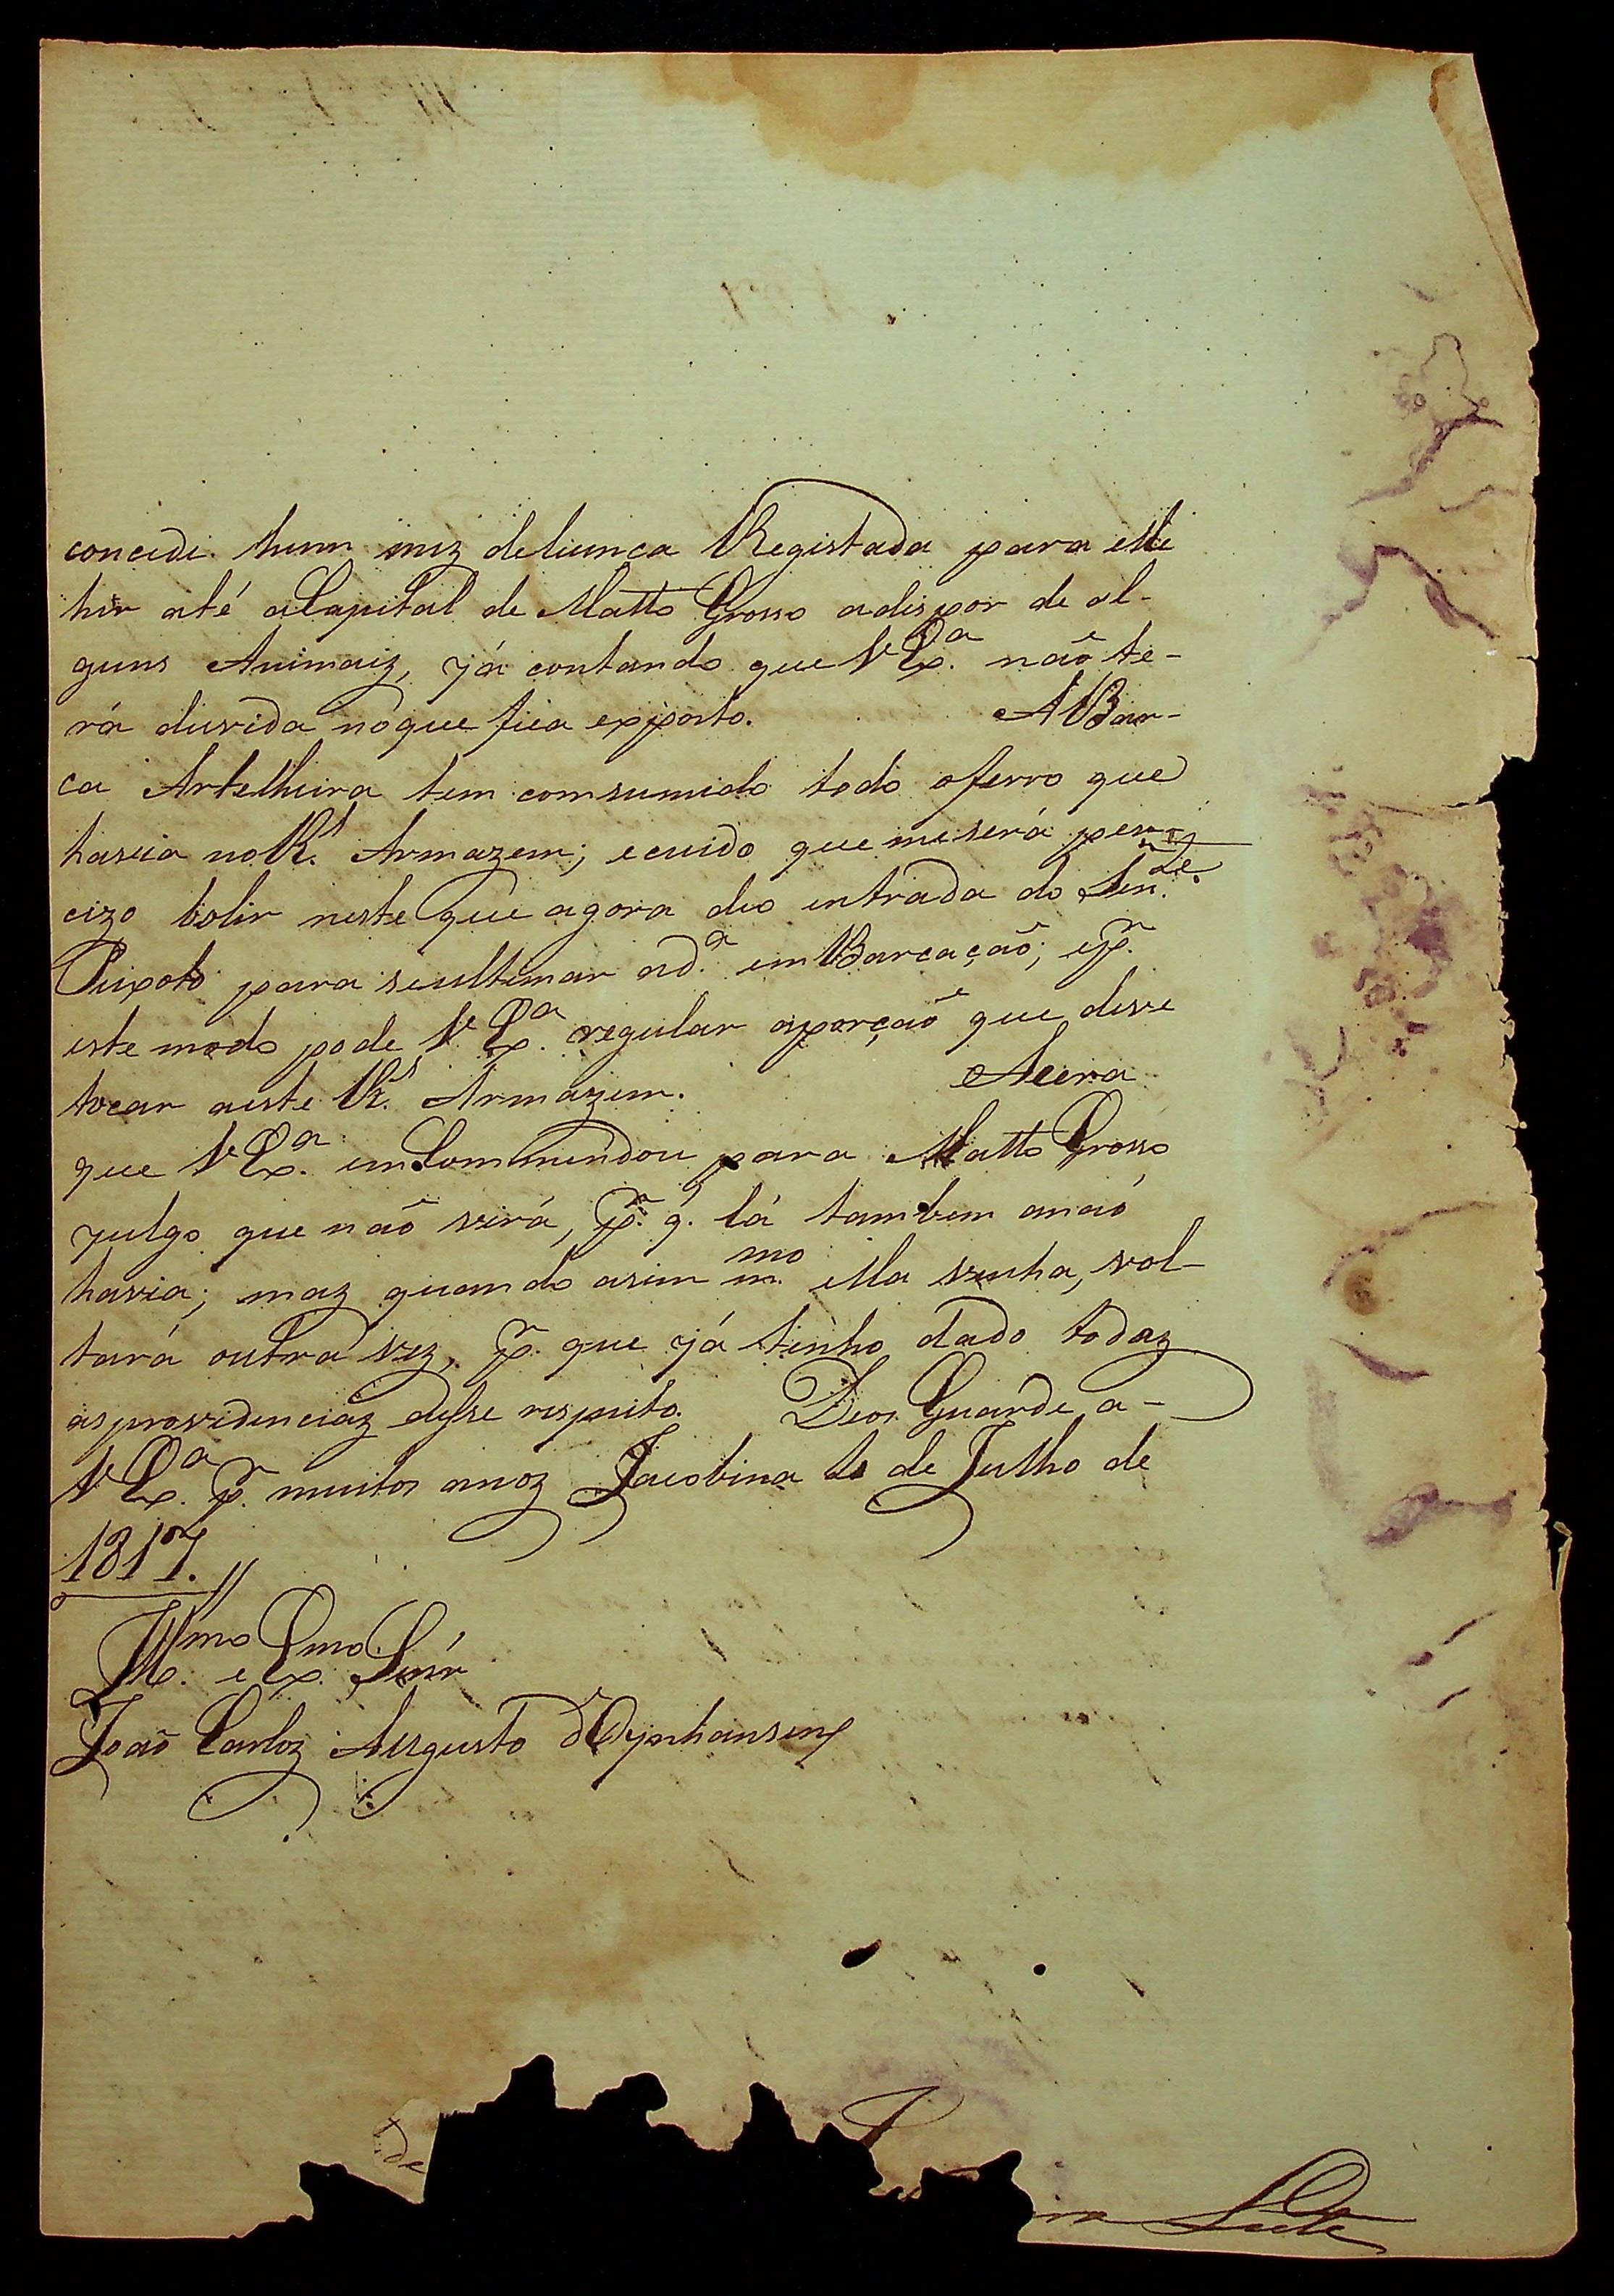 concedi hum mez deliunça Registada para elle
hir até aCapital de Matto Grosso adispor de al-
guns Animaiz, já contando que V Exª. não te-
rá duvida noque fica exposto. A Bar-
ca Artelheira tem comsumido todo oferro que
havia noR.l Armazem; ecuido que meserá per-
cizo bolir neste que agora deo entrada do Ten.te
Peixoto para seultimar ad.ª emBarcação; ep.r
este modo pode V Exª. regular aporção que deve
tocar aeste R.l Armazem. Acera
que V Exª. emCommendou para Matto Grosso
julgo que não virá, p.r q. lá tambem anaó
havia; maz quando asim m.mo ella venha, vol-
tará outra vez, p.r que já tenho dado todaz
asprovidenciaz desse respeito. Deos Guarde a-
V Exª. p.r muitos anoz Jacobina de Julho de
1817.
Ill.mo e Ex.mo Senr
João Carloz Augusto d'Oeynhausen
de
Leite